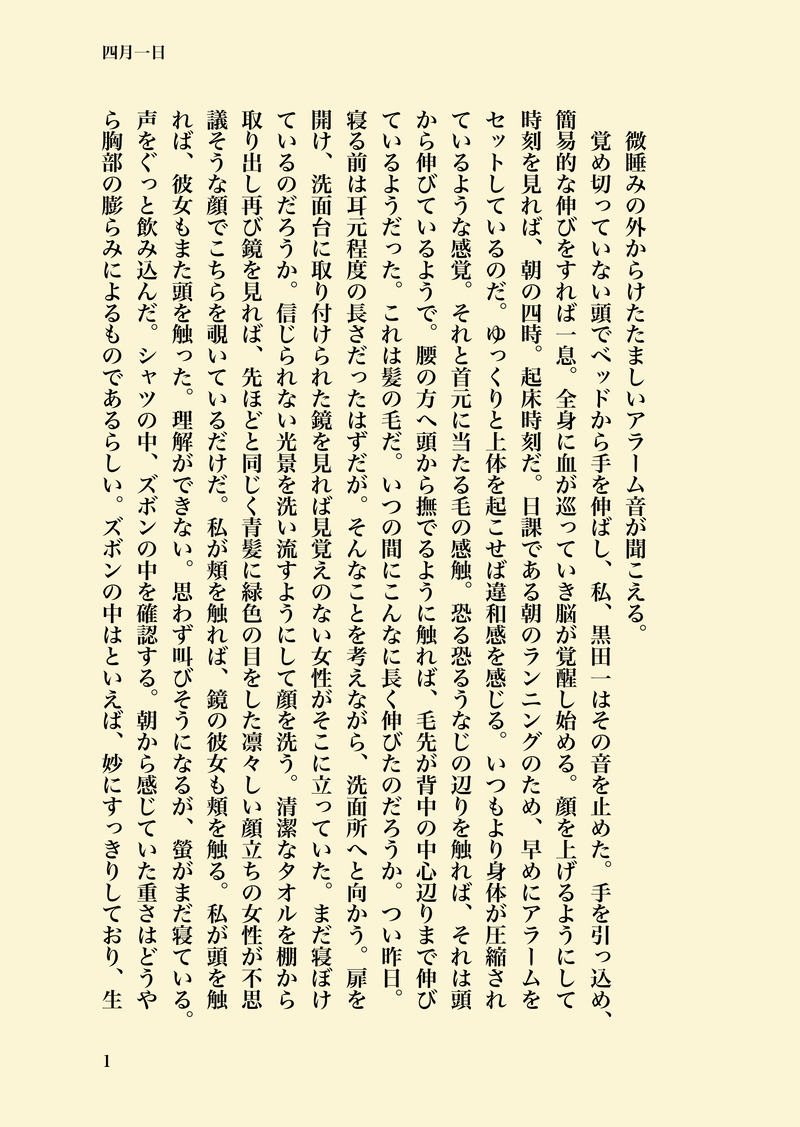 四月一日
微睡みの外からけたたましいアラーム音が聞こえる。
覚め切っていない頭でベッドから手を伸ばし、私、黒田一はその音を止めた。手を引っ込め、
簡易的な伸びをすれば一息。全身に血が巡っていき脳が覚醒し始める。顔を上げるようにして
時刻を見れば、朝の四時。起床時刻だ。日課である朝のランニングのため、早めにアラームを
セットしているのだ。ゆっくりと上体を起こせば違和感を感じる。いつもより身体が圧縮され
ているような感覚。それと首元に当たる毛の感触。恐る恐るうなじの辺りを触れば、それは頭
から伸びているようで。腰の方へ頭から撫でるように触れば、毛先が背中の中心辺りまで伸び
ているようだった。これは髪の毛だ。いつの間にこんなに長く伸びたのだろうか。つい昨日。
寝る前は耳元程度の長さだったはずだが。そんなことを考えながら、洗面所へと向かう。扉を
開け、洗面台に取り付けられた鏡を見れば見覚えのない女性がそこに立っていた。まだ寝ぼけ
ているのだろうか。信じられない光景を洗い流すようにして顔を洗う。清潔なタオルを棚から
取り出し再び鏡を見れば、先ほどと同じく青髪に緑色の目をした凛々しい顔立ちの女性が不思
議そうな顔でこちらを覗いているだけだ。私が頬を触れば、鏡の彼女も頬を触る。私が頭を触
れば、彼女もまた頭を触った。理解ができない。思わず叫びそうになるが、螢がまだ寝ている。
声をぐっと飲み込んだ。シャツの中、ズボンの中を確認する。朝から感じていた重さはどうや
ら胸部の膨らみによるものであるらしい。ズボンの中はといえば、妙にすっきりしており、生
1